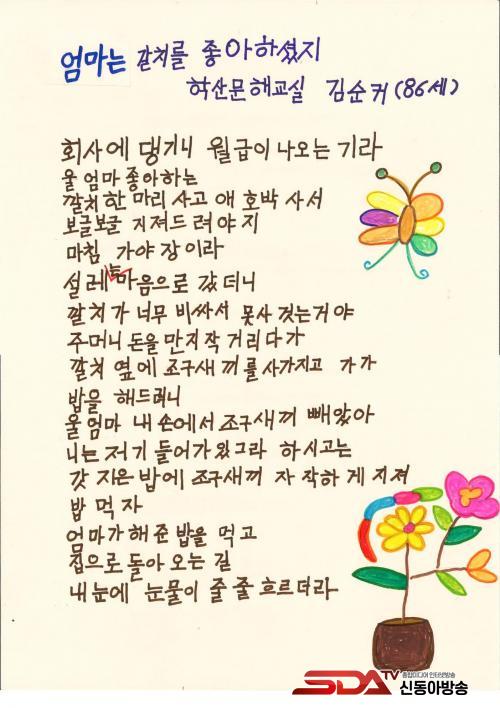 엄마는 깔치를 좋아하셨지
학산문해교실 김순커(86세)
회사에 댕기니 월급이 나오는 기라
울 엄마 좋아하는
깔치 한 마리 사고 애 호박 사서
보글보글 지져드려야지
마침 가야장이라
설레는 마음으로 갔더니
깔치가 너무 비싸서 못사 것는거야
주머니 돈을 만지작 거리다가
깔치 옆에 조구새끼를 사가지고 가가
밥을 해드려니
울엄마 내 손에서 조구새끼 빼았아
니는 저기 들어가 있그라 하시고는
갓 지은 밥에 조구새끼 자작하게 지져
밥 먹자
엄마가 해 준 밥을 먹고
집으로 돌아 오는 길
내 눈에 눈물이 줄 줄 흐르더라
SDATV 종합미디어 인터넷방송
신동아방송